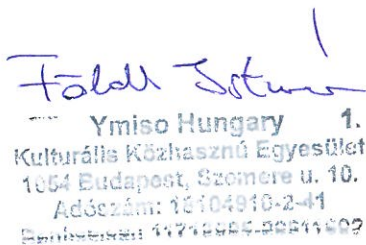 Földi István
Ymiso Hungary 1.
Kulturális Közhasznú Egyesület
1054 Budapest, Szemere u. 10.
Adószám: 18104910-2-41